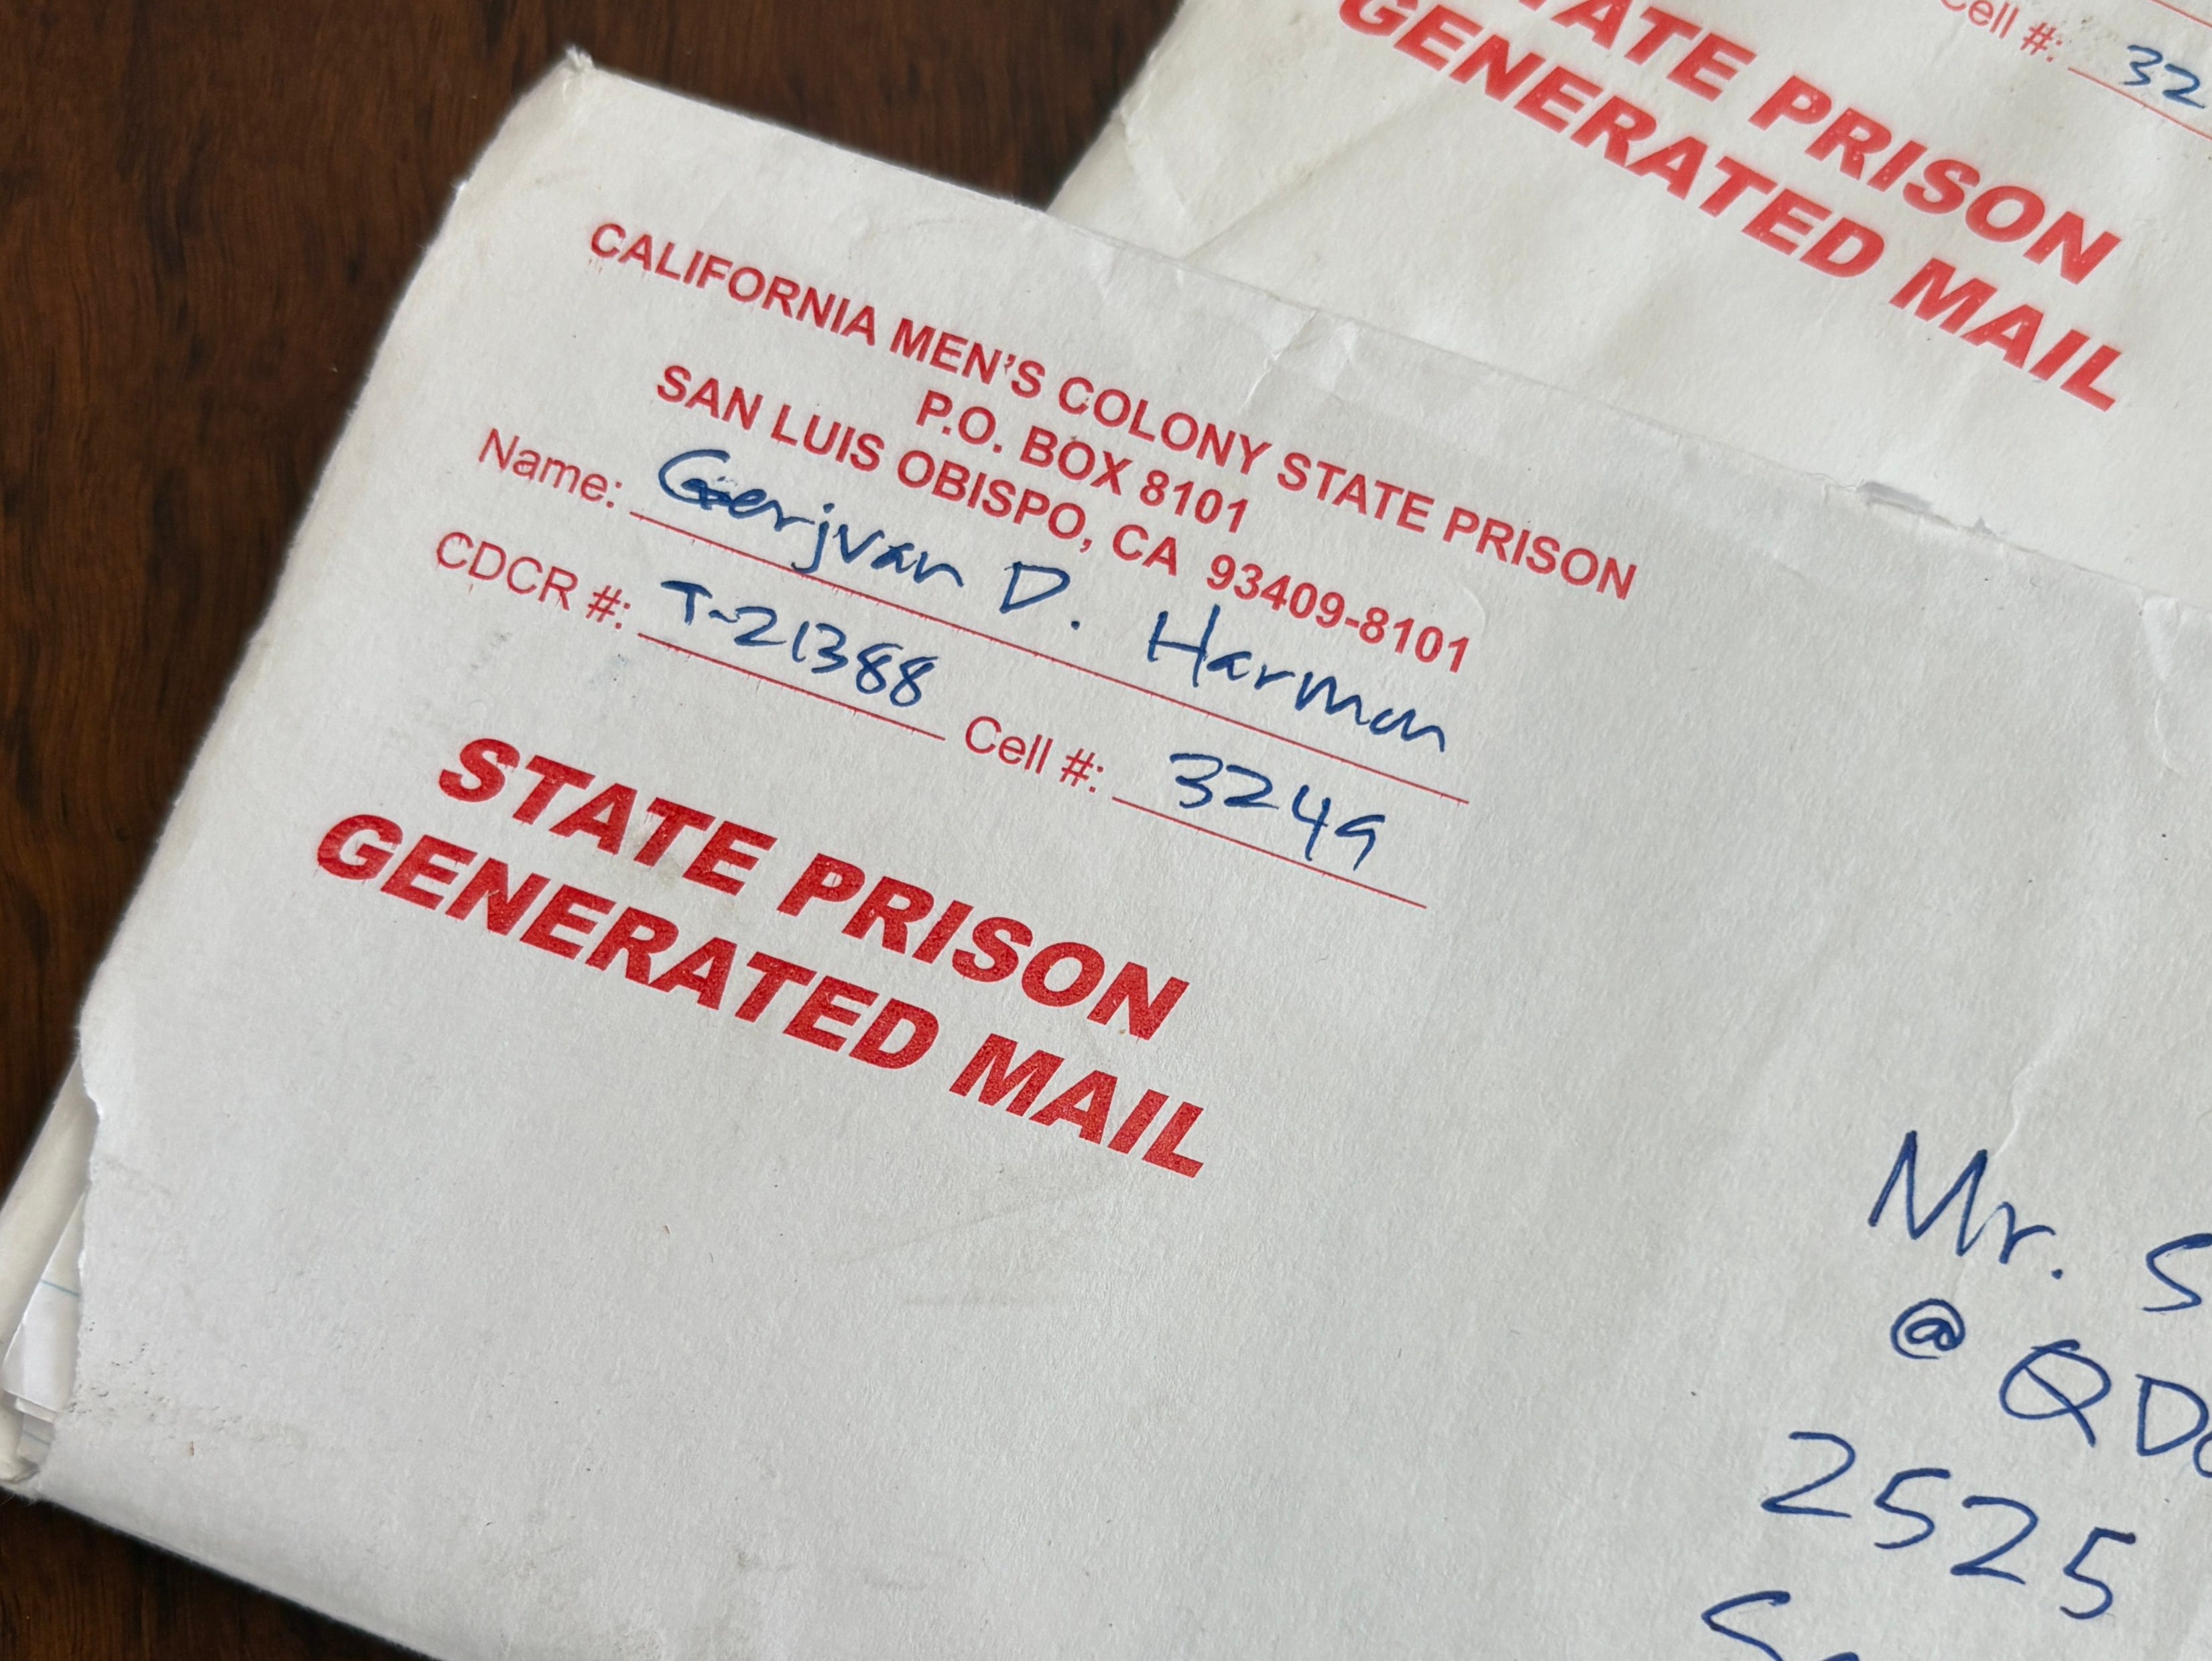 CALIFORNIA MEN'S COLONY STATE PRISON
P.O. BOX 8101
SAN LUIS OBISPO, CA 93409-8101
Name: Gerjvan D. Harmon
CDCR #: T-21388 Cell #: 3249
STATE PRISON
GENERATED MAIL
Mr. S
@ QD
2525
Cell #: 32
STATE PRISON
GENERATED MAIL